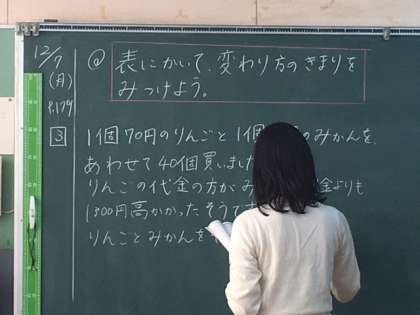 12/7
(月)
P.179
@ 表にかいて、変わり方のきまりを
みつけよう。
3 1個70円のりんごと1個 のみかんを、
あわせて40個買いました
りんごの代金の方がみ 金よりも
1300円高かったそうです
りんごとみかんを